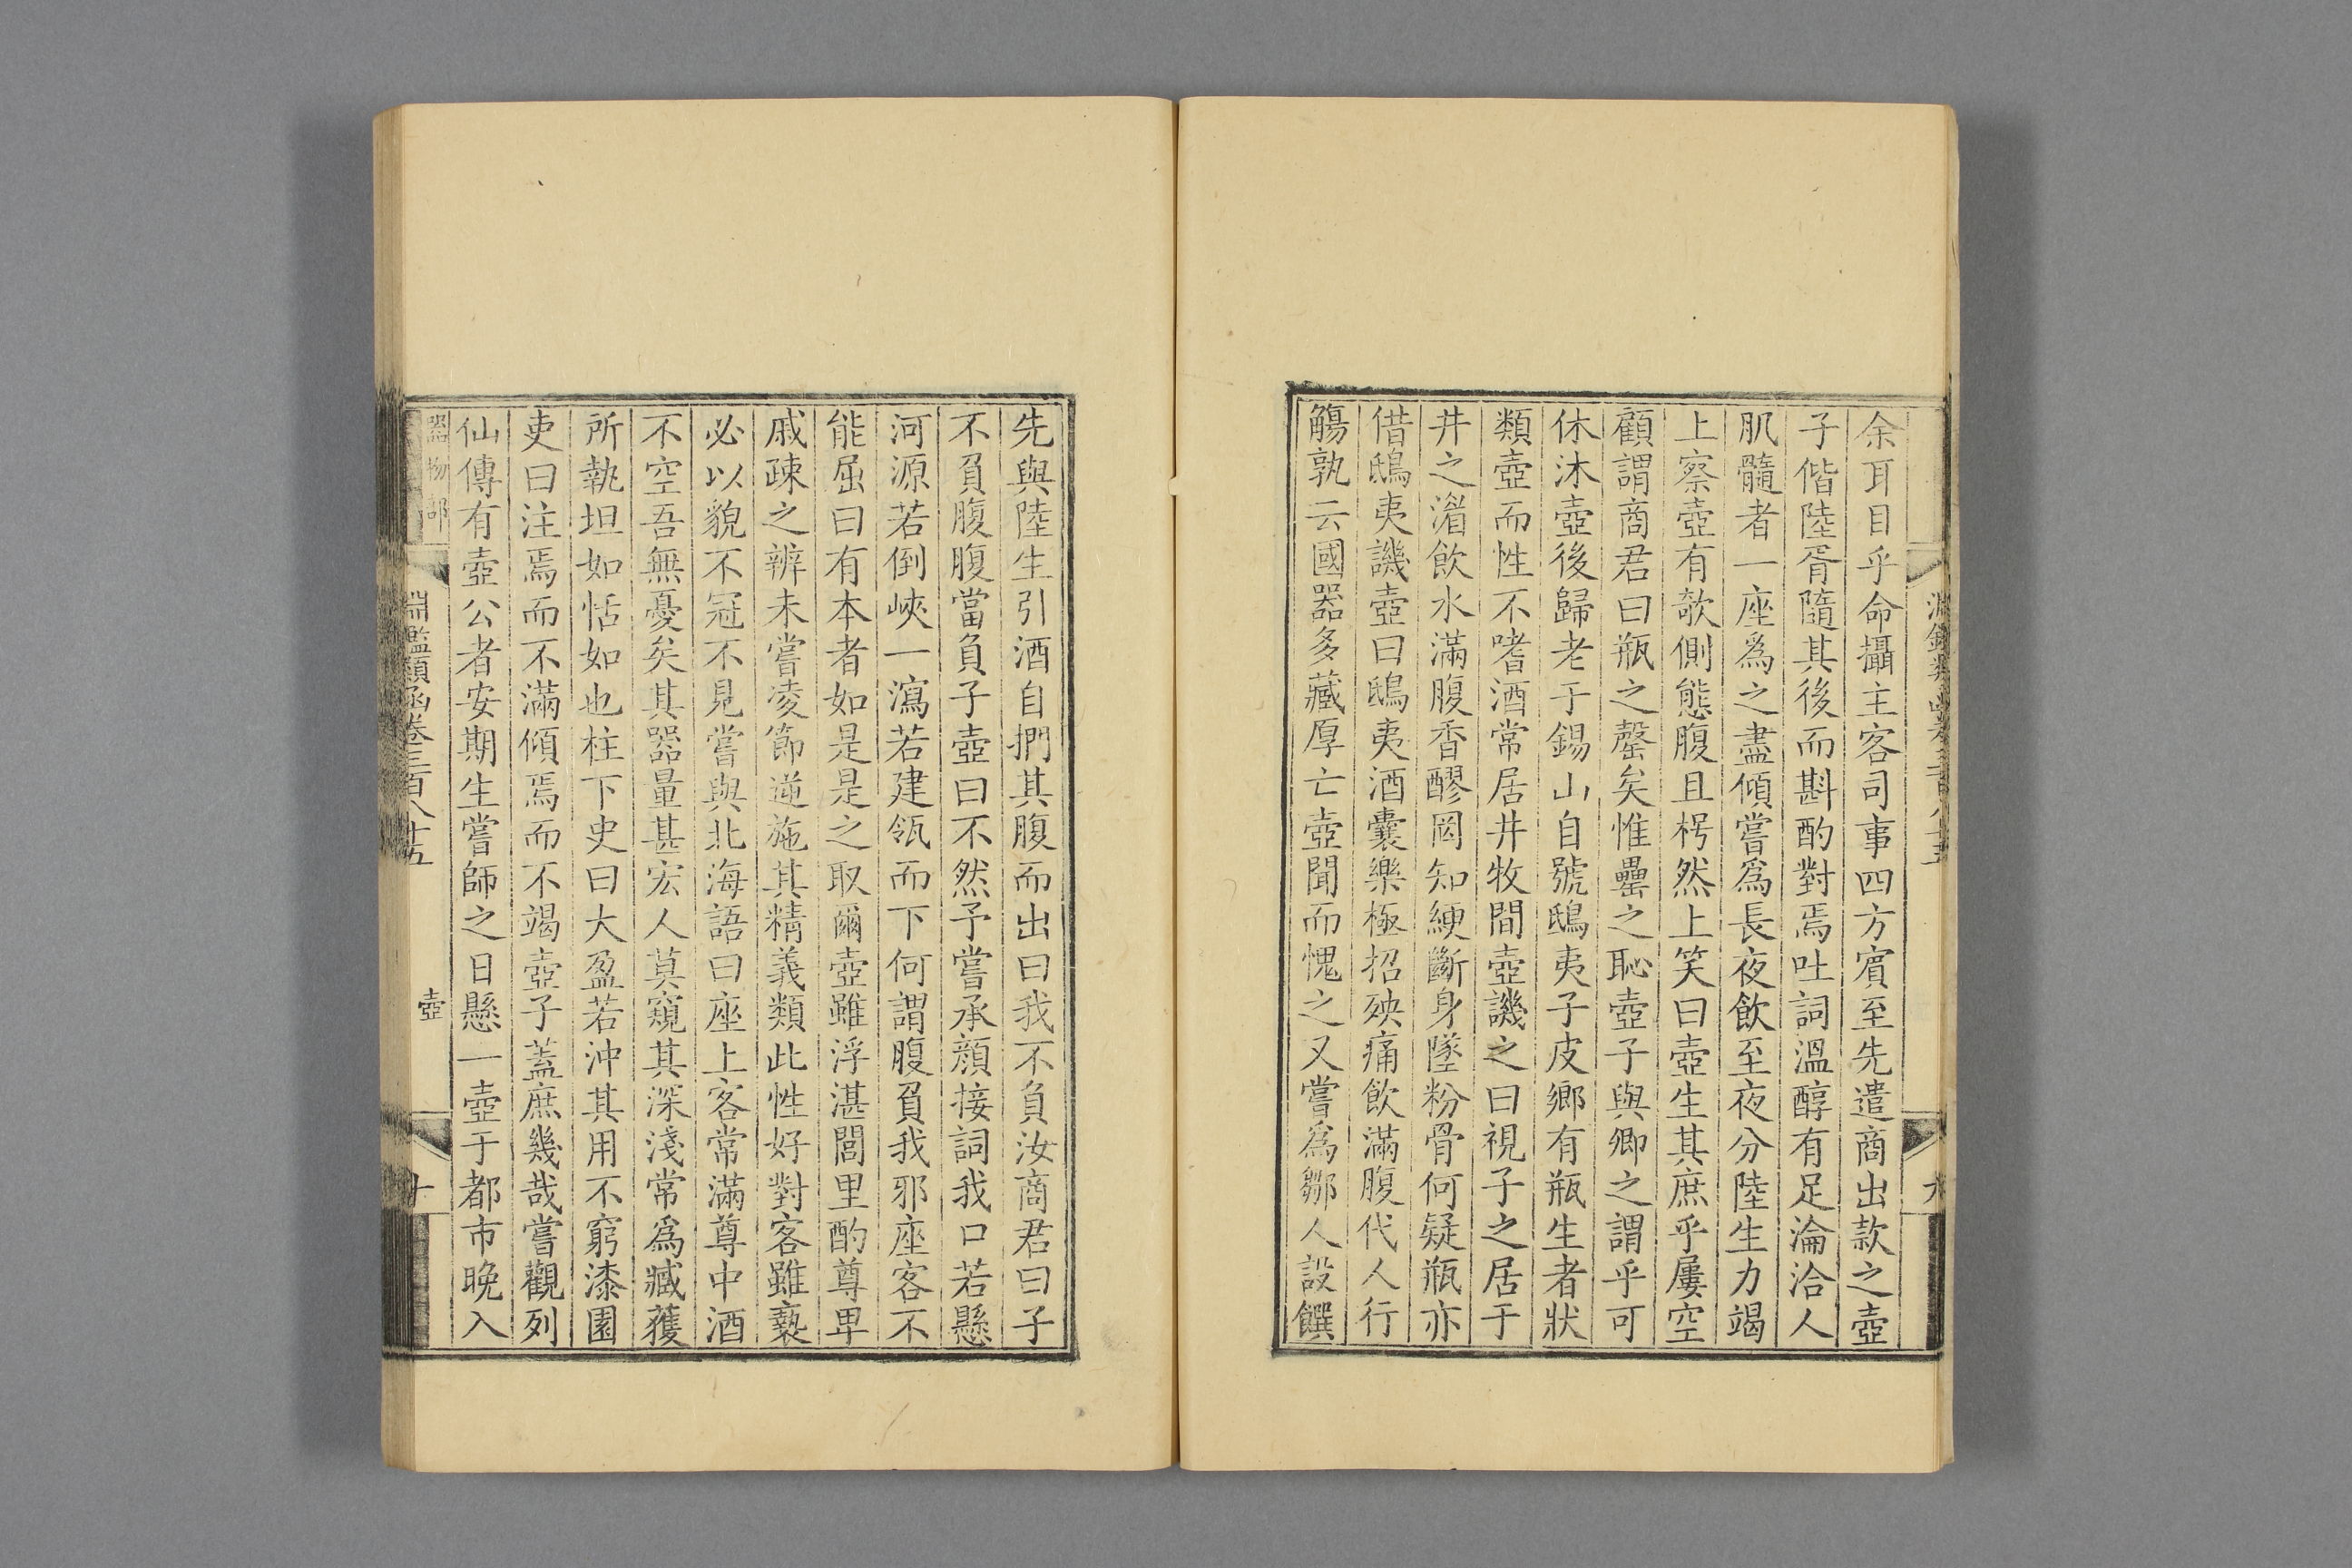 余耳目乎命攝主客司事四方賓至先遣商出款之壺
子偕陸胥隨其後而斟酌對焉吐詞溫醇有足淪洽人
肌髓者一座爲之盡傾嘗爲長夜飲至夜分陸生力竭
上察壺有欹側態腹且枵然上笑曰壺生其庶乎屢空
顧謂商君曰瓶之罄矣惟罍之恥壺子與卿之謂乎可
休沐壺後歸老于錫山自號鴟夷子皮鄉有瓶生者狀
類壺而性不嗜酒常居井牧間壺譏之曰視子之居于
井之湄飲水滿腹香醪罔知綆斷身墜粉骨何疑瓶亦
借鴟夷譏壺曰鴟夷酒囊樂極招殃痛飲滿腹代人行
觴孰云國器多藏厚亡壺聞而愧之又嘗爲鄒人設饌
先與陸生引酒自捫其腹而出曰我不負汝商君曰子
不負腹腹當負子壺曰不然予嘗承顏接詞我口若懸
河源若倒峽一瀉若建瓴而下何謂腹負我邪座客不
能屈曰有本者如是是之取爾壺雖浮湛閭里酌尊卑
戚疎之辨未嘗凌節逆施其精義類此性好對客雖褻
必以貌不冠不見嘗與北海語曰座上客常滿尊中酒
不空吾無憂矣其器量甚宏人莫窺其深淺常爲臧獲
所執坦如恬如也柱下史曰大盈若沖其用不窮漆園
吏曰注焉而不滿傾焉而不竭壺子蓋庶幾哉嘗觀列
仙傳有壺公者安期生嘗師之日懸一壺于都市晚入
器物部
淵鑑類函卷三百八十五
壺
十